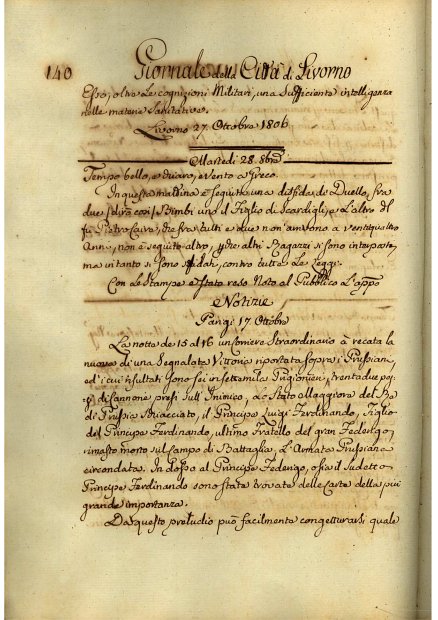 140 Giornale della Città di Livorno
Esso, oltre Le cognizioni Militari, una Sufficiente intelligenza
nelle materie Sanitative.
Livorno 27. Ottobre 1806.
Martedì 28. 8bre
Tempo bello, e chiaro, e vento a Greco.
In questa mattina è seguita una disfida, de Duello, fra
due Bimbi uno il Figlio di Scardigli, e L'altro del
fu Pietro che fra tutti e due non arrivono a ventiquattro
Anni, non è seguito altro, perche altri Ragazzi si sono interposti,
ma intanto si sono sfidati, contro tutte Le Leggi.
Con Le Stampe è stato reso Noto al Pubblico L'app.o
Notizie
Parigi 17. Ottobre
La notte de 15 al 16 un Corriere Straordinario à recata la
nuova di una Segnalata Vittoria riportata sopra i Prussiani,
ed i cui risultati sono sei in settemila Prigionieri, trentadue pez:
zi di Cannone presi sull'Inimico, Lo Stato Maggiore del Re
di Prussia Schiacciato, il Principe Luigi Ferdinando, Figlio
del Principe Ferdinando, ultimo Fratello del gran Federigo,
rimasto morto sul Campo di Battaglia, L'Armata Prussiana
circondata. In dosso al Principe Federigo, o sia il Sudetto
Principe Ferdinando sono state trovate delle Carte della più
grande importanza.
Da questo preludio può facilmente congetturarsi quale